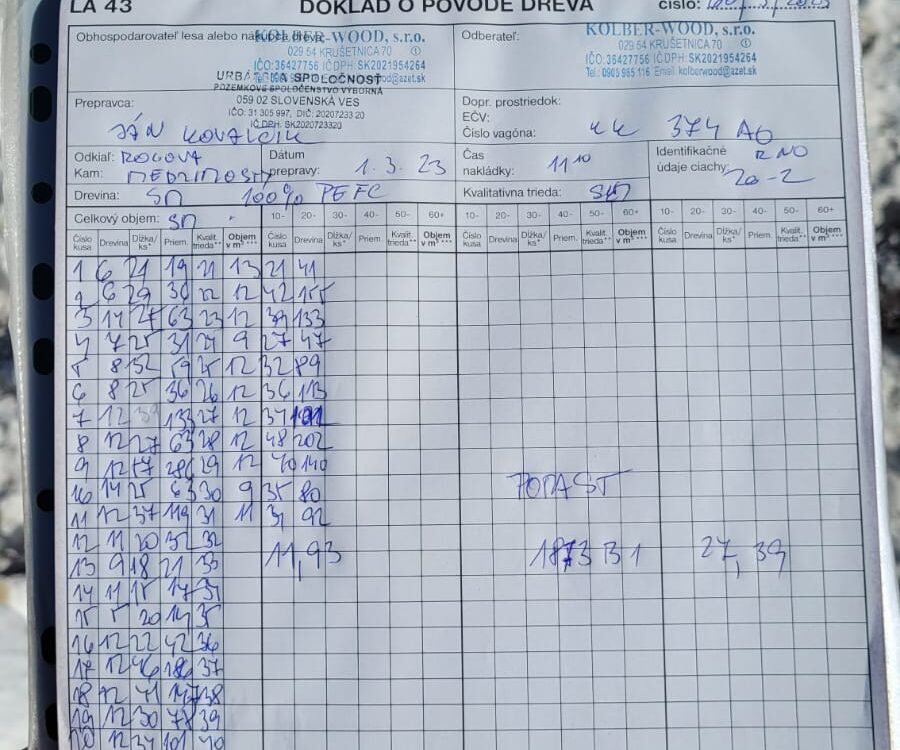 LA 43 DOKLAD O PÔVODE DREVA číslo:
Obhospodarovateľ lesa alebo
KOLBER-WOOD, s.r.o.
029 54 KRUŠETNICA 70 ①
IČO:36427756 IČ DPH: SK2021954264
URBÁRSKA SPOLOČNOSŤ
POZEMKOVÉ SPOLOČENSTVO VÝBORNÁ
059 02 SLOVENSKÁ VES
IČO: 31 305 997, DIČ: 2020723320
IČ DPH: SK2020723320
Odberateľ:
KOLBER-WOOD, s.r.o.
029 54 KRUŠETNICA 70 ①
IČO:36427756 IČ DPH: SK2021954264
Tel.: 0903 985 116 Email: kolberwood@azet.sk
Prepravca:
JÁN KOVALČIK
Dopr. prostriedok:
EČV:
Číslo vagóna: KK 374 AG
Odkiaľ: ROGOVA
Kam:
Dátum
prepravy: 1. 3. 23
Čas
nakládky: 11 10
Identifikačné RNO
údaje ciachy: 20-2
Drevina: SM 100% PEFC
Kvalitatívna trieda:
Celkový objem: SM 10- 20- 30- 40- 50- 60+ 10- 20- 30- 40- 50- 60+ 10- 20- 30- 40- 50- 60+
Číslo kusa Drevina Dĺžka/ ks* Priem. Kvalit. trieda** Objem v m³*** Číslo kusa Drevina Dĺžka/ ks* Priem. Kvalit. trieda** Objem v m³*** Číslo kusa Drevina Dĺžka/ ks* Priem. Kvalit. trieda** Objem v m³*** Číslo kusa Drevina Dĺžka/ ks* Priem. Kvalit. trieda** Objem v m³***
1 6 21 19 21 13 21 41
2 6 29 36 22 12 42 155
3 14 27 63 23 12 39 133
4 7 25 31 24 9 27 47
5 8 32 59 25 12 32 89
6 8 25 36 26 12 36 113
7 12 39 133 27 12
8 12 27 63 28 12 48 202
9 12 29 12 40 140
10 14 25 63 30 9 35 80
11 12 37 119 31 11 31 92
12 11 20 32 32
13 9 18 21 33
11,93 1873 B1 27,39
14 11 15 17 34
15 5 20 14 35
16 12 22 42 36
17 12 46 186 37
18 12 41 147 38
19 12 30 78 39
20 12 34 101 40